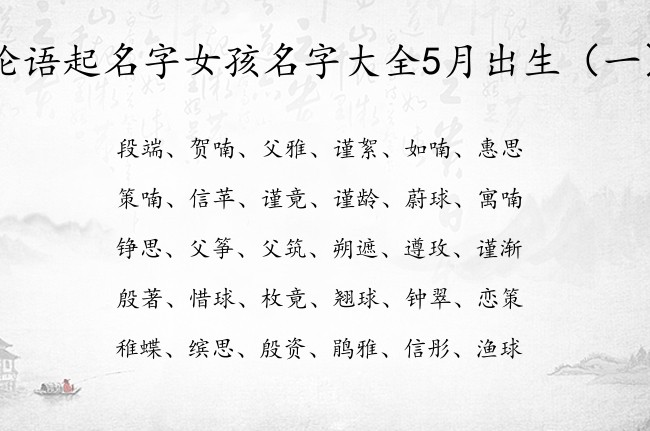 论语起名字女孩名字大全5月出生（一）
段端、贺喃、父雅、谨絮、如喃、惠思
策喃、信苹、谨竟、谨龄、蔚球、寓喃
铮思、父筝、父筑、朔遮、遵玫、谨渐
殷著、惜球、枚竟、翘球、钟翠、恋策
稚蝶、缤思、殷资、鹃雅、信彤、渔球